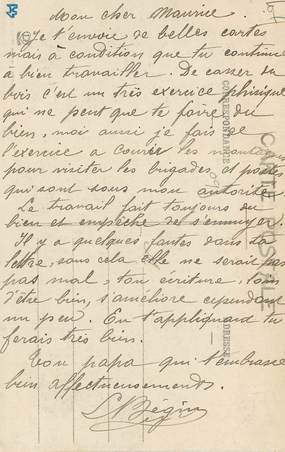 Mon cher Maurice.
Je t'envoie de belles cartes
mais à condition que tu continue
à bien travailler. De casser du
bois c'est un très exercice phisique
qui ne peut que te faire du
bien, moi aussi je fais de
l'exercice à courir les montans
pour visiter les brigades et postes
qui sont sous mon autorité.
Le travail fait toujours du
bien et empêche de s'ennuyer.
Il y a quelques fautes dans ta
lettre, sous cela elle ne serait pas
pas mal, ton écriture, loin
d'être bien, s'améliore cependant
un peu. En t'appliquant tu
ferais très bien.
Ton papa qui t'embrasse
bien affectueusements.
L Bégin
CARTE POSTALE
CORRESPONDANCE
ADRESSE